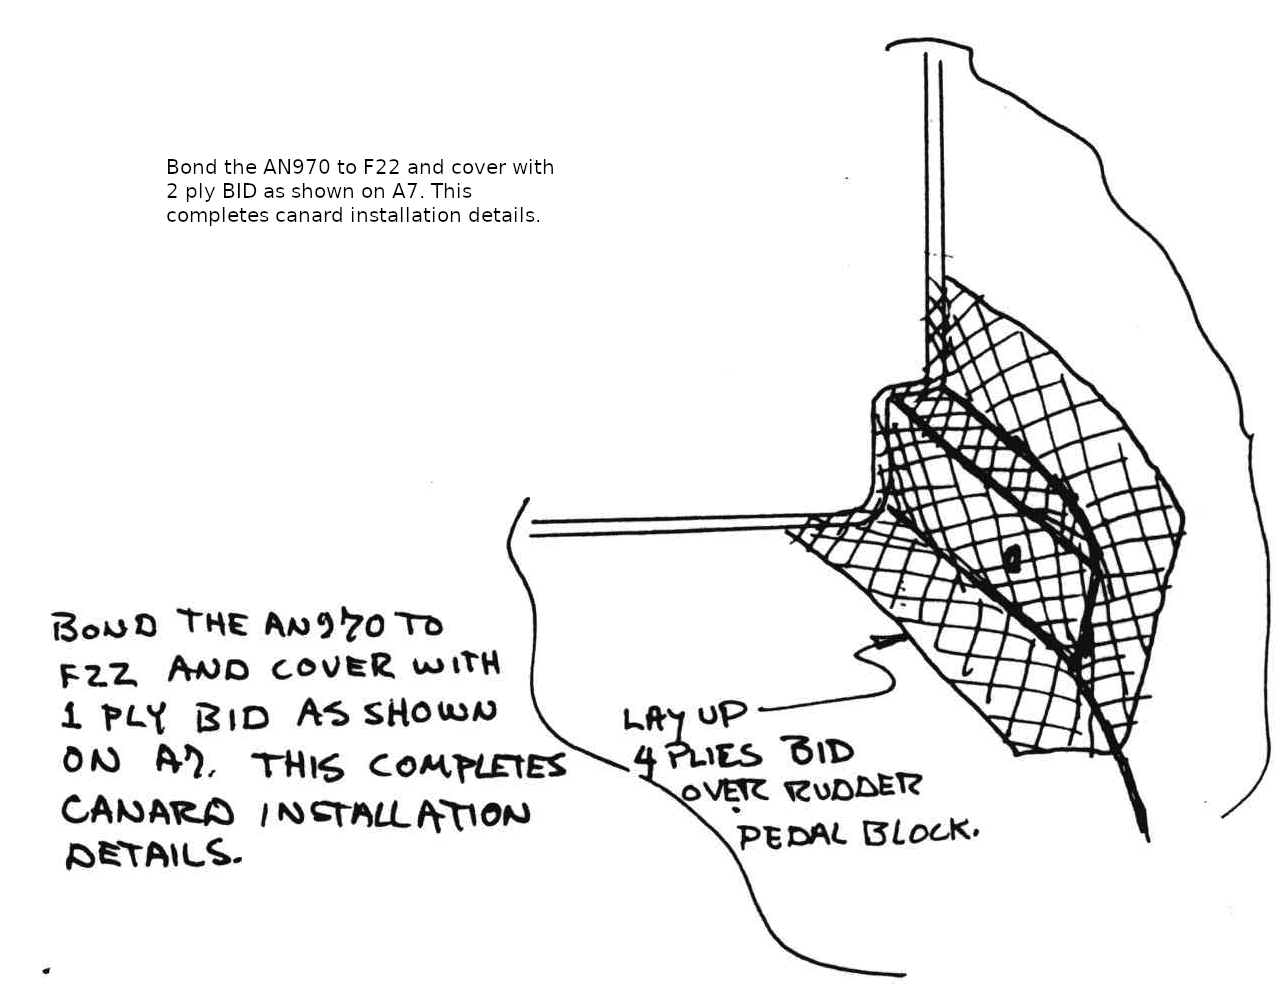 Bond the AN970 to F22 and cover with
2 ply BID as shown on A7. This
completes canard installation details.
BOND THE AN970 TO
F22 AND COVER WITH
1 PLY BID AS SHOWN
ON A7. THIS COMPLETES
CANARD INSTALLATION
DETAILS.
LAY UP
4 PLIES BID
OVER RUDDER
PEDAL BLOCK.